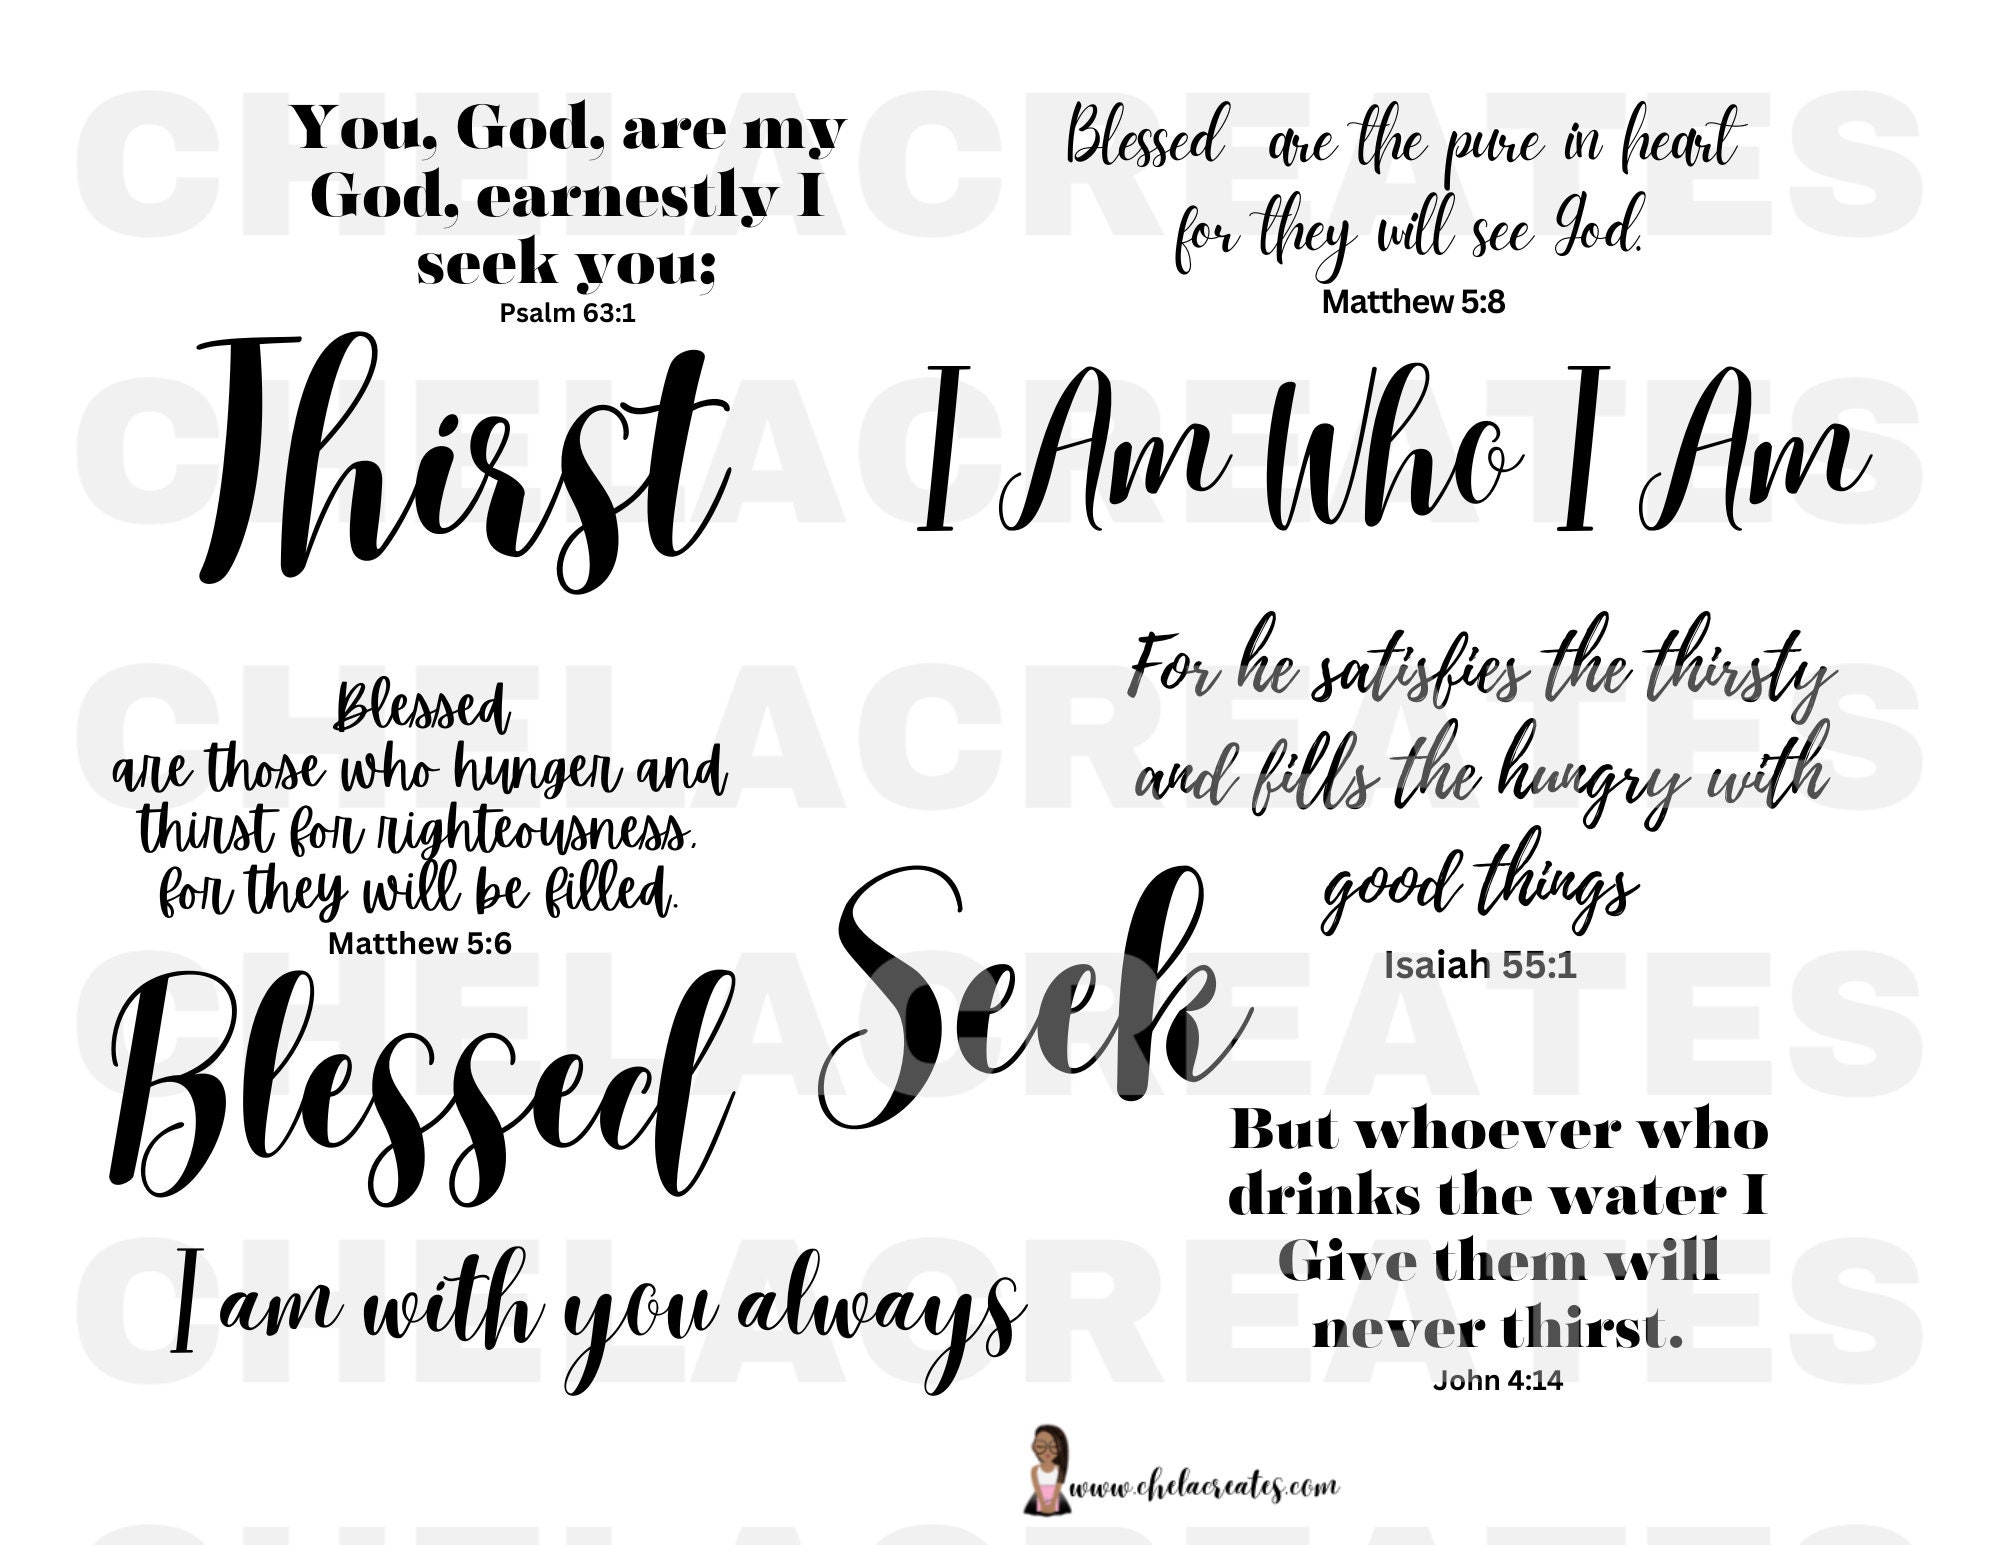 CHELACREATES
You, God, are my
God, earnestly I
seek you;
Psalm 63:1
Blessed are the pure in heart
for they will see God.
Matthew 5:8
CHELACREATES
Thirst
I Am Who I Am
CHELACREATES
Blessed
are those who hunger and
thirst for righteousness,
for they will be filled.
Matthew 5:6
For he satisfies the thirsty
and fills the hungry with
good things
Isaiah 55:1
CHELACREATES
Blessed
Seek
CHELACREATES
I am with you always
But whoever who
drinks the water I
Give them will
never thirst.
John 4:14
www.chelacreates.com
CHELACREATES